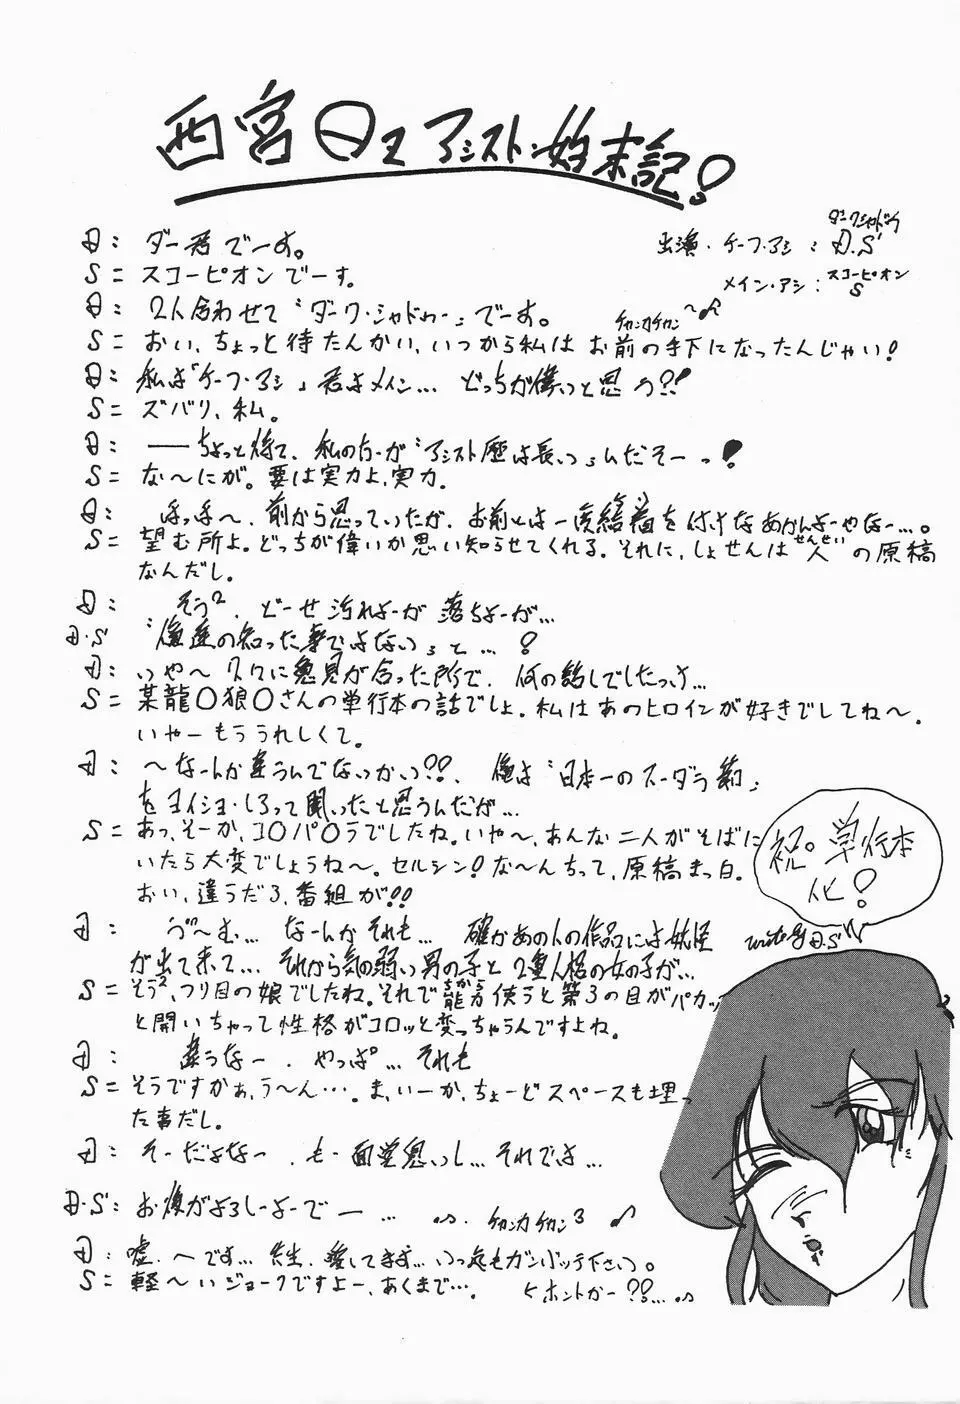 西宮日エアシスト始末記!
出演・チーフ・アシ:D.S
ダークシャドウ
メイン・アシ:S
スコーピオン
D:ダー君でーす。
S=スコーピオンでーす。
D:2人合わせて〝ダーク・シャドゥー〟でーす。
チャンカチャン〜♪
S=おい、ちょっと待たんかい、いつから私はお前の手下になったんじゃい!
D:私は「チーフ・アシ」君はメイン… どっちが偉いっと思う?!
S=ズバリ、私。
D:――ちょっと待て、私の方が〝アシスト歴は長い〟んだぞーっ!
S=な〜にが。要は実力よ、実力。
D:ほっほ〜、前から思っていたが、お前とは一度結着を付けなあかんよーやなー…。
S=望む所よ。どっちが偉いか思い知らせてくれる。それに、しょせんは人(せんせい)の原稿
なんだし。
D:そう²、どーせ汚れよーが落ちよーが…
D・S「俺達の知った事ではない」と…!
D:いや〜 久々に意見が合った所で、何の話しでしたっけ…
S=某龍〇狼〇さんの単行本の話でしょ。私はあのヒロインが好きでしてね〜。
いやーもううれしくて。
D:〜なーんか違うんでないかい??、俺は〝日本一のスーダラ節〟
をヨイショ・しろって聞いったと思うんだが…
S=あっ、そーか、コ〇パ〇ラでしたね。いや〜、あんな二人がそばに
いたら大変でしょうね〜。セルシン!な〜んちって、原稿まっ白。
おい、違うだろ、番組が!!
祝。単行本
化!
write by D.S
D:う〜む… なーんかそれも… 確かあの人の作品には妖怪
が出て来て… それから気の弱い男の子と2重人格の女の子が…
S=そう²、つり目の娘でしたね。それで能力(ちから)使うと第3の目がパカッ
と開いちゃって性格がコロッと変っちゃうんですよね。
D:違うなー、やっぱ…それも
S=そうですかぁ、う〜ん…。ま、いーか、ちょーどスペースも埋っ
た事だし。
D:そーだよなー、も一面倒臭いし…それでは…
D・S:お後がよろしーよーでー… チャンカチャン³ ♪
D:嘘.〜です… 先生.愛してます… いつ迄もガンバッテ下さい。
S=軽〜いジョークですよー、あくまで…。 ホントかー??…